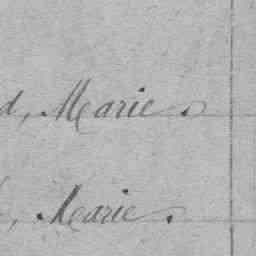 d, Marie.
, Marie.